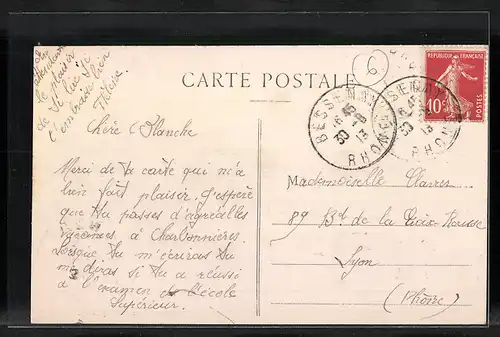 En
attendant
le plaisir
de te lire je
t'embrasse bien
Hélène
CARTE POSTALE
6
RÉPUBLIQUE FRANÇAISE
10c
BESSENAY
30 - 8
13
RHONE
BESSENAY
30
13
RHONE
Chère Blanche
Merci de ta carte qui m'a
bien fait plaisir. J'espère
que tu passes d'agréables
vacances à Charbonnières
Lorsque tu m'écriras tu
me diras si tu a réussi
à l'examen de l'école
Supérieur.
Mademoiselle
89 Bd de la Croix-Rousse
Lyon
(Rhône)